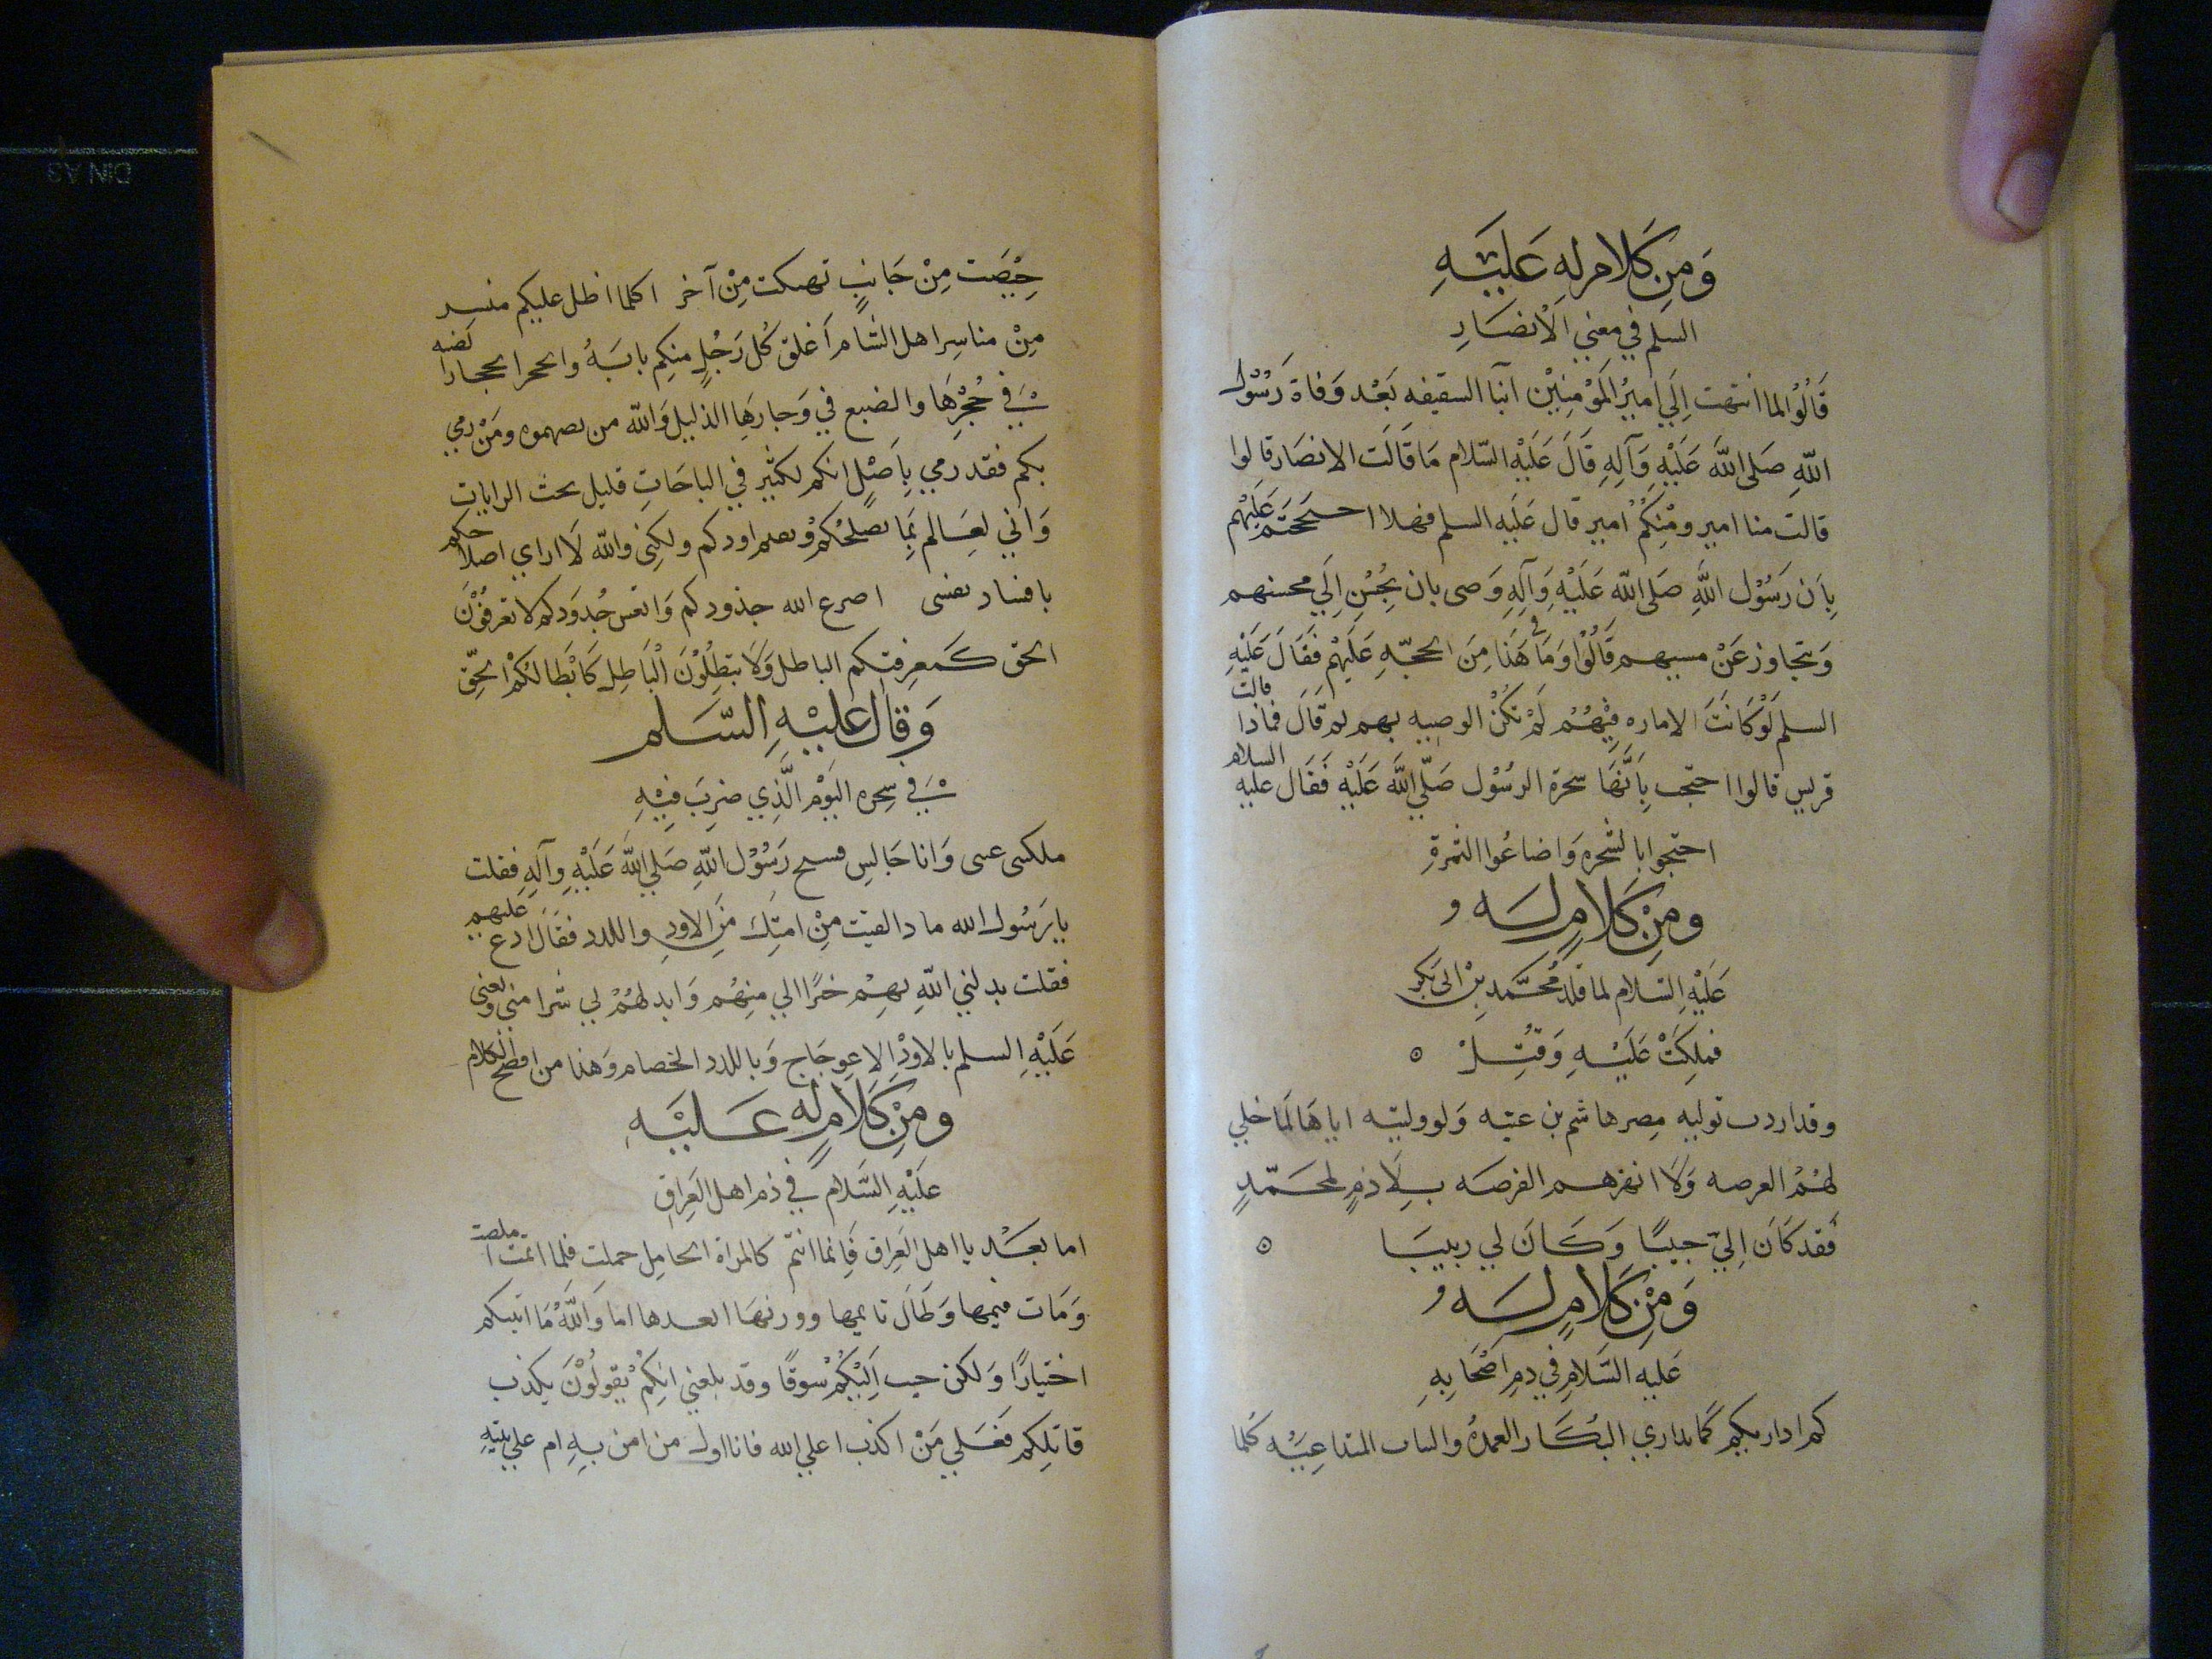 وَمِن كَلَامٍ لهِ عَلَيْهِ
السلم في معني الأنصَارِ
قَالُوا لما انتهت اِلَي اَمِيرُ المُؤْمِنِيْن اَنبآ السقيفه بَعْد وَفاة رَسُوْل
اللّهِ صَلى اللَّه عَلَيْهِ وَآلِهِ قَالَ عَلَيْهِ السّلام مَا قَالَت الانصَار قالوا
قالت منا امير ومِنكُمْ امير قال عَليَه السلم فهلا احتججَتم عَليْهم
بِاَن رَسُوْل اللَّهِ صَلى اللّه عَلَيْهِ وَآلِهِ وَصى بان يُحْسِن اِلَي محسنهم
وَيتجاوز عَنْ مسيهم قَالُوْا وَمَا في هَذَا مِنَ الحجّهِ عَليْهِم فَقَالَ عَلَيْهِ
السلم لَوْ كَانَتَ الاماره فِيْهُمْ لَمْ تكُنْ الوصيه بهم ثم قَالَ فماذا قالت
قريس قالوا احتجت بِاَنَّهَا سجرة الرسُوْل صَلّي اللَّه عَلَيْهِ فَقَال عليه السلام
احتجوا بالشجره وَاضاعُوا الثمرةِ
ومِنْ كَلَامٍ لَه و
عَلَيْهِ السّلام لما قلد مُحَمَّد بن ابى بَكرِ
فملِكَتْ عَلَيْهِ وَقتِلْ ه
وقد اردت توليه مِصر هاشم بن عتبه وَلو وليته اياهَا لمَا خلي
لهُمُ العرصه وَلا انهزهم الفرصَه بِلَا ذمٍ لمحَمّدٍ
فَقد كَاَنَ اِليّ حبيبًا وَكَانَ لي ربيبَا ه
وَمِنْ كَلَامٍ لَه و
عَليه السَّلام في دمِ اَصْحَابِهِ
كم اداريكم كمَا تداري البكَار العمدُ والثياب المتداعِيَه كُلما
حِيْصَت مِنْ جَانِبٍ تهتكت مِنْ آخر اكلما اظل عليكم منسر
مِنْ مناسِر اهل الشام اَغلقَ كُل رَجُلٍ منِكم بابَهُ وانجحر انجحار الضبه
فِي حُجْرِهَا والضبع في وَجارِهَا الذليل وَاللّه من نصرتموه ومَنْ رمي
بكم فقد رمي بِاَصْلٍ انكم لكثير في الباحَاتِ قليل تحت الرايات
وَاني لعَالم بِمَا يُصلحُكم ويقيم اودكم ولكِنى واللّه لَا اراي اصلاحكم
بافساد نفسى اصرع الله خدودكم وَاتعس جُدوَدكم لا تعرفُوْنَ
الحق كَمعرِفتكم الباطل وَلَا تبطِلُوْنَ الْبَاطِل كَابْطَالكُمْ الحِقّ
وَقال عَليْهِ السَّلم
فِي سِحره اليَوْمِ الَّذِي ضِربَ فِيْهِ
ملكتنى عينى وَانا جَالِس فسنح رَسُوْل اللّهِ صَلي اللَّه عَلَيْهِ وآلهِ فقلت
يا رَسُول الله ماذا لقيت مِنْ امتِك مَن الاودِ واللدد فقَال ادع عَليهم
فقلت بدلني اللّهِ بهِمْ خيرًا لي مِنهُم وَابدلهُمْ لي شرا مني ويعني
عَلَيْهِ السلم بالاود الاعِوجَاج وَباللدد الخصام وَهذا من افصح الكلام
ومِنْ كَلَامٍ له عَليْه
علَيْهِ السَّلام في ذم اهل العَراقِ
اما بعَد يا اهل العَراق فَانما انتم كالمراة الحامِل حملت فلما اتمت املصت
وَمَات قيمها وَطَال تايمها وورثهَا ابعدها اما وَاللَّهُ مَا اتيتكم
اختيارًا وَلكن جيت اِليْكُمْ سُوقًا وقد بلغني انكِمُ تْقولُوْنَ يكذب
قاتلكم فَعَلي مَنْ اكذب اعلي الله فانا اول من امن بِهِ ام علي نبيهِ